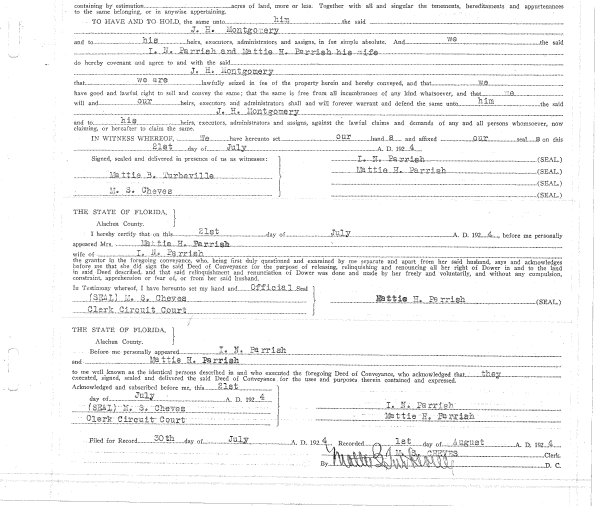 containing by estimation acres of land, more or less. Together with all and singular the tenements, hereditaments and appurtenances
to the same belonging, or in anywise appertaining.
TO HAVE AND TO HOLD, the same unto him the said
J. H. Montgomery
and to his heirs, executors, administrators and assigns, in fee simple absolute. And we the said
I. N. Parrish and Mattie H. Parrish his wife
do hereby covenant and agree to and with the said
J. H. Montgomery
that we are lawfully seized in fee of the property herein and hereby conveyed, and that we
have good and lawful right to sell and convey the same; that the same is free from all incumbrances of any kind whatsoever, and that we
will and our heirs, executors and administrators shall and will forever warrant and defend the same unto him the said
J. H. Montgomery
and to his heirs, executors, administrators and assigns, against the lawful claims and demands of any and all persons whomsoever, now
claiming, or hereafter to claim the same.
IN WITNESS WHEREOF, we have hereunto set our hand s and affixed our seal s on this
21st day of July A. D. 192 4
Signed, sealed and delivered in presence of us as witnesses:
I. N. Parrish (SEAL)
Mattie B. Turbeville
Mattie H. Parrish (SEAL)
(SEAL)
M. S. Cheves
(SEAL)
THE STATE OF FLORIDA,
Alachua County.
I hereby certify that on this 21st day of July A. D. 192 4, before me personally
appeared Mrs. Mattie H. Parrish
wife of I. N. Parrish
the grantor in the foregoing conveyance, who, being first duly questioned and examined by me separate and apart from her said husband, says and acknowledges
before me that she did sign the said Deed of Conveyance for the purpose of releasing, relinquishing and renouncing all her right of Dower in and to the land
in said Deed described, and that said relinquishment and renunciation of Dower was done and made by her freely and voluntarily, and without any compulsion,
constraint, apprehension or fear of, or from her said husband.
In Testimony whereof, I have hereunto set my hand and Official Seal
(SEAL) M. S. Cheves
Mattie H. Parrish (SEAL)
Clerk Circuit Court
THE STATE OF FLORIDA,
Alachua County.
Before me personally appeared I. N. Parrish
and Mattie H. Parrish
to me well known as the identical persons described in and who executed the foregoing Deed of Conveyance, who acknowledged that they
executed, signed, sealed and delivered the said Deed of Conveyance for the uses and purposes therein contained and expressed.
Acknowledged and subscribed before me, this 21st
day of July A. D. 192 4
(SEAL) M. S. Cheves
I. N. Parrish
Clerk Circuit Court
Mattie H. Parrish
Filed for Record 30th day of July A. D. 192 4 Recorded 1st day of August A. D. 192 4
M. S. CHEVES Clerk.
By Mattie B. Turbeville D. C.